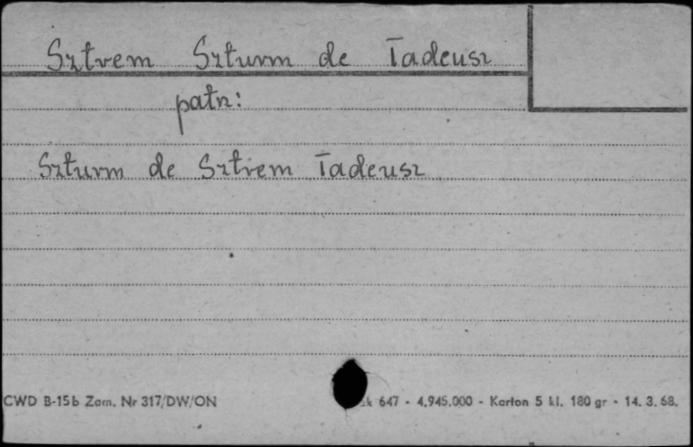 Sztrem Szturm de Tadeusz
patrz:
Szturm de Sztrem Tadeusz
CWD B-15b Zam. Nr 317/DW/ON 647 - 4.945.000 - Karton 5 kl. 180 gr - 14. 3. 68.